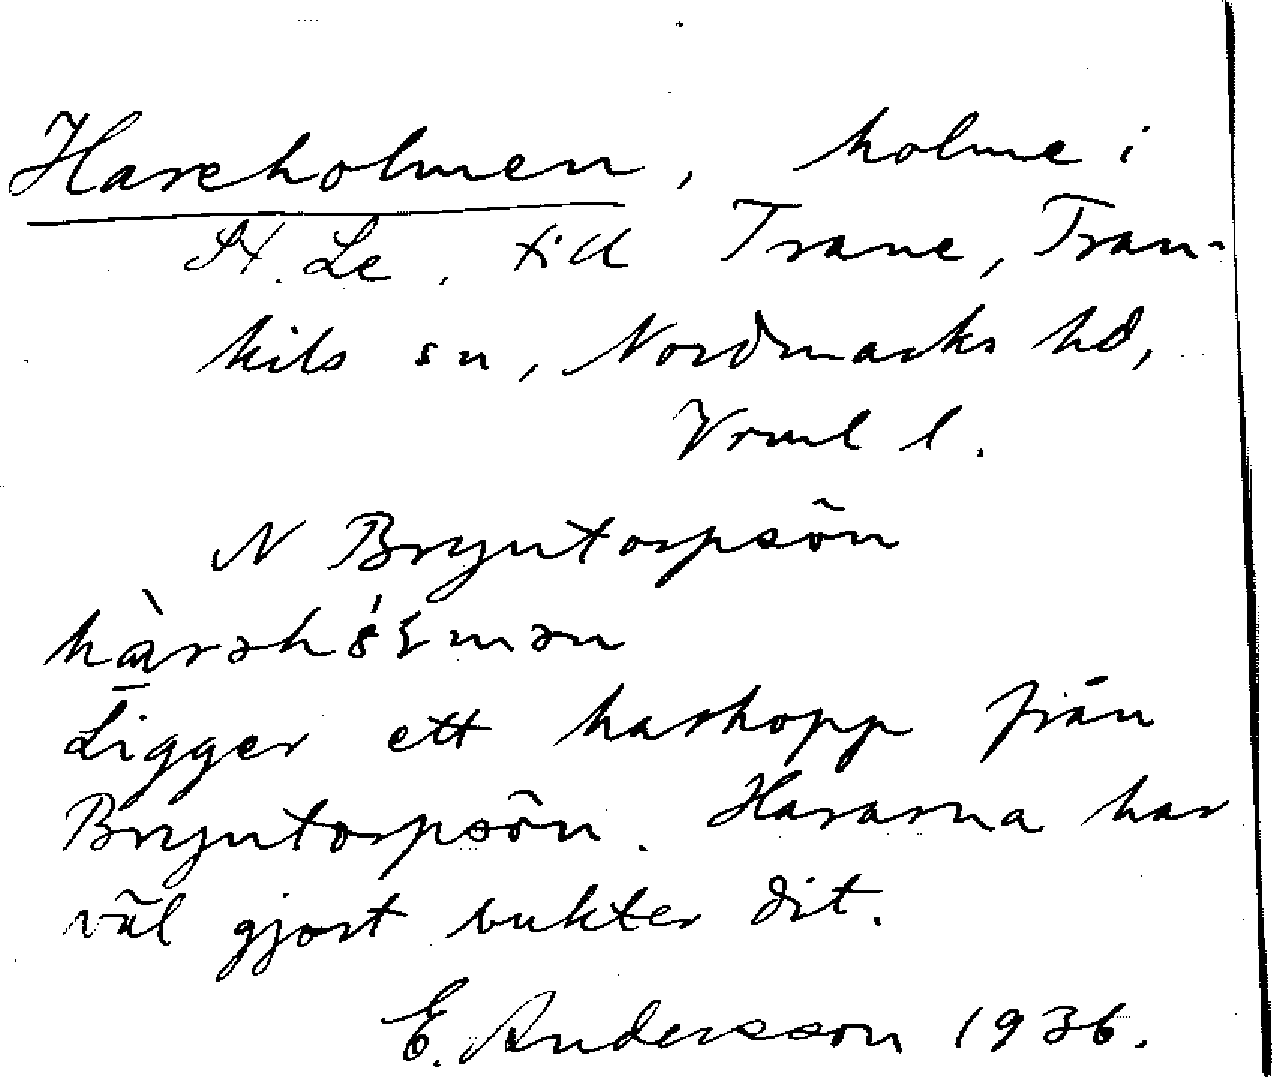 Hareholmen, holme i
St. Le, till Trane, Tran-
kils sn, Nordmarks hd,
Vrml l.
N Bryntorpsön
Ligger ett harhopp från
Bryntorpsön. Hararna har
väl gjort bukter dit.
E. Andersson 1936.